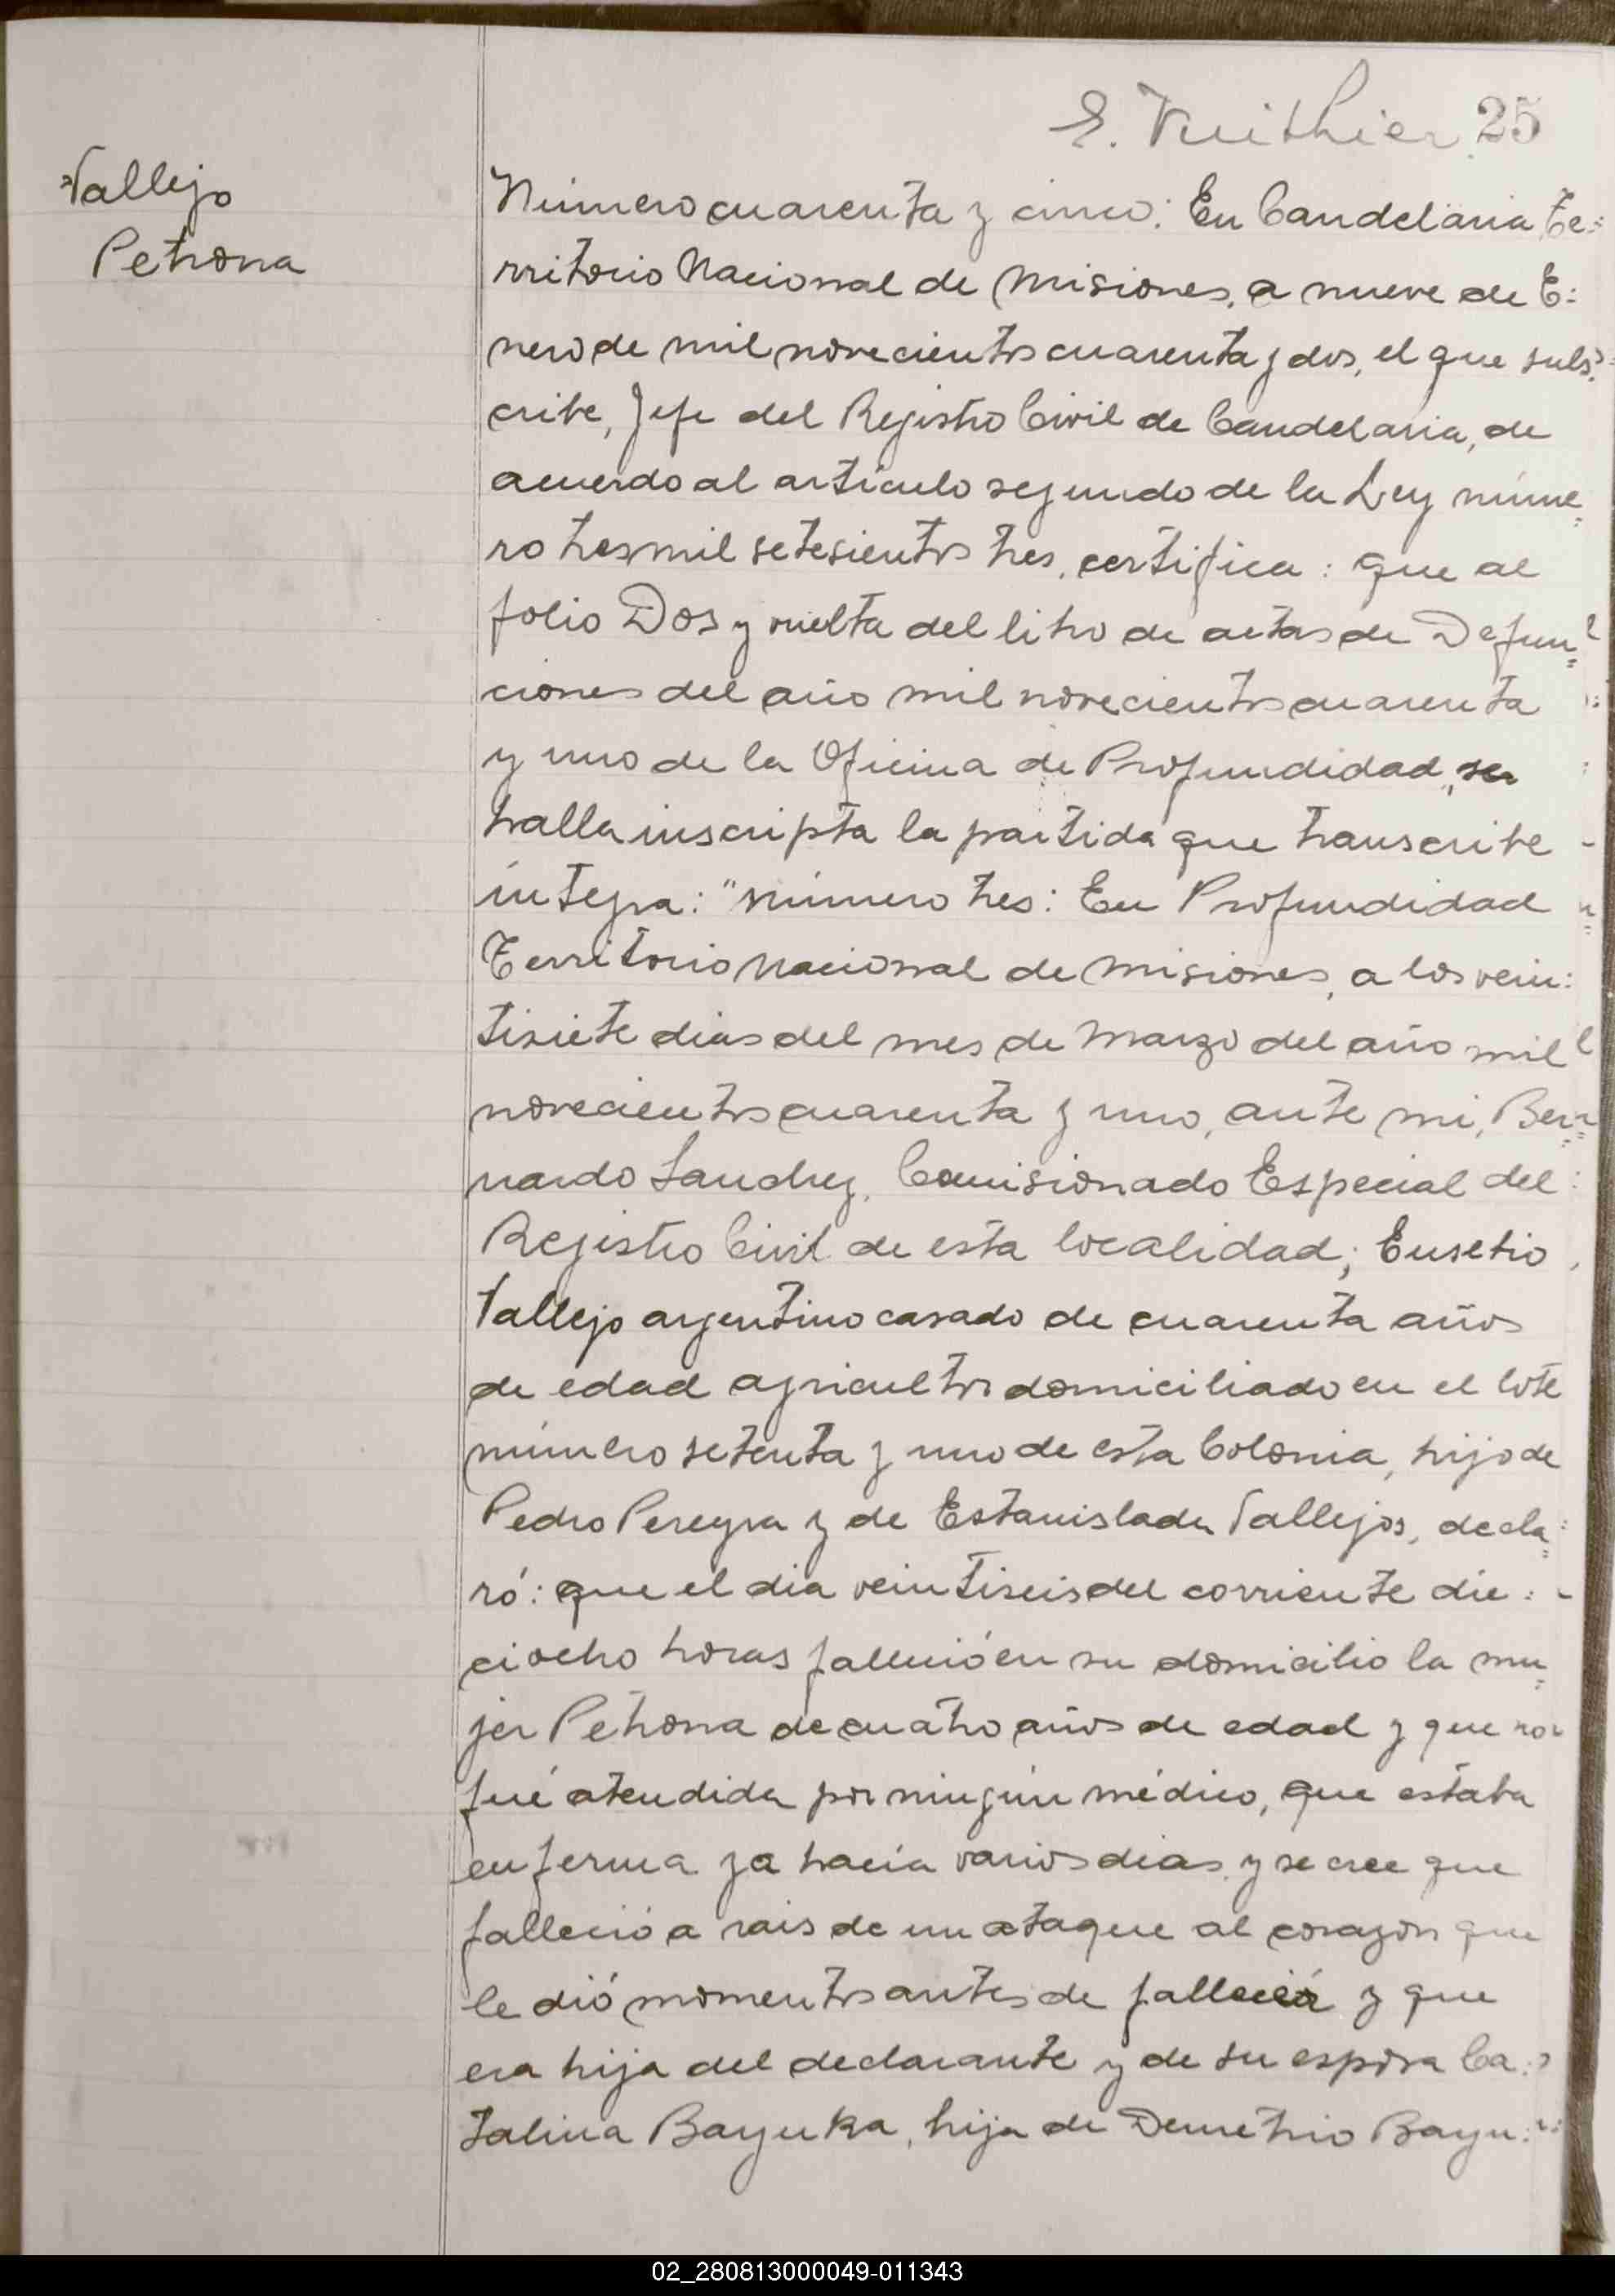 E. Vuithier 25
Vallejo
Petrona
Número cuarenta y cinco: En Candelaria, Te=
rritorio Nacional de Misiones, a nueve de E=
nero de mil novecientos cuarenta y dos, el que subs=
cribe, Jefe del Registro Civil de Candelaria, de
acuerdo al artículo segundo de la Ley núme=
ro tres mil setesientos tres, certifica: que al
folio Dos y vuelta del libro de actas de Defun=
ciones del año mil novecientos cuarenta
y uno de la Oficina de Profundidad, se
halla inscripta la partida que transcribe
íntegra: "Número tres: En Profundidad
Territorio Nacional de Misiones, a los vein=
tisiete dias del mes de Marzo del año mil
novecientos cuarenta y uno, ante mi, Ber=
nardo Sanchez, Comisionado Especial del
Registro Civil de esta localidad; Eusebio
Vallejo argentino casado de cuarenta años
de edad agricultor domiciliado en el lote
número setenta y uno de esta Colonia, hijo de
Pedro Pereyra y de Estanislada Vallejos, decla=
ró: que el dia veintiseis del corriente die=
ciocho horas falleció en su domicilio la mu=
jer Petrona de cuatro años de edad y que no
fué atendida por ningún médico, que estaba
enferma ya hacía varios dias y se cree que
falleció a rais de un ataque al corazon que
le dió momentos antes de fallecer y que
era hija del declarante y de su esposa Ca=
talina Bayuka, hija de Demetrio Bayu=
02_280813000049-011343